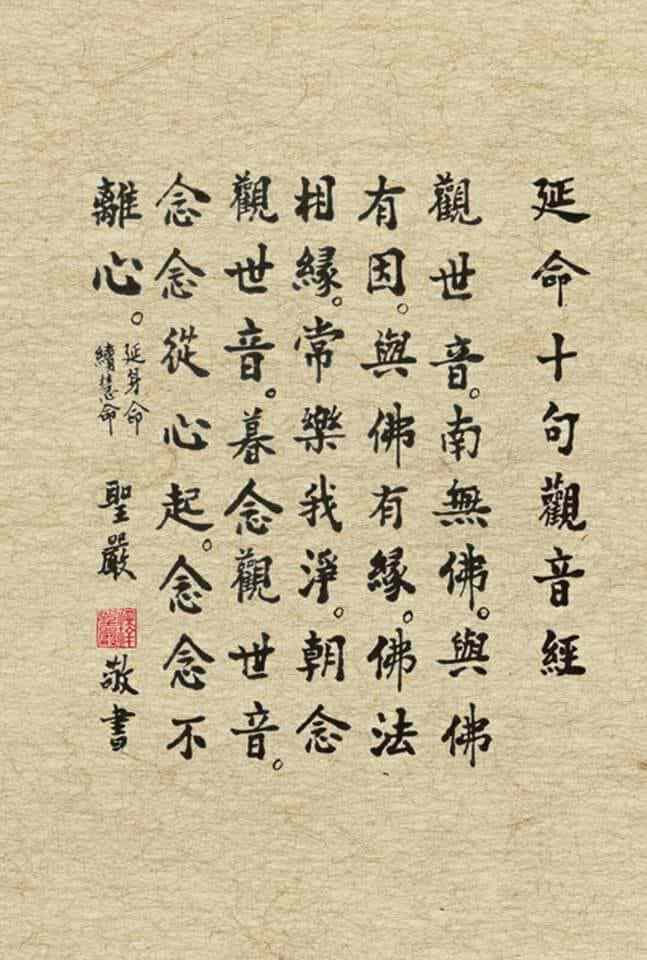 延命十句觀音經
觀世音。南無佛。與佛
有因。與佛有緣。佛法
相緣。常樂我淨。朝念
觀世音。暮念觀世音。
念念從心起。念念不
離心。
延身命
續慧命
聖嚴
敬書